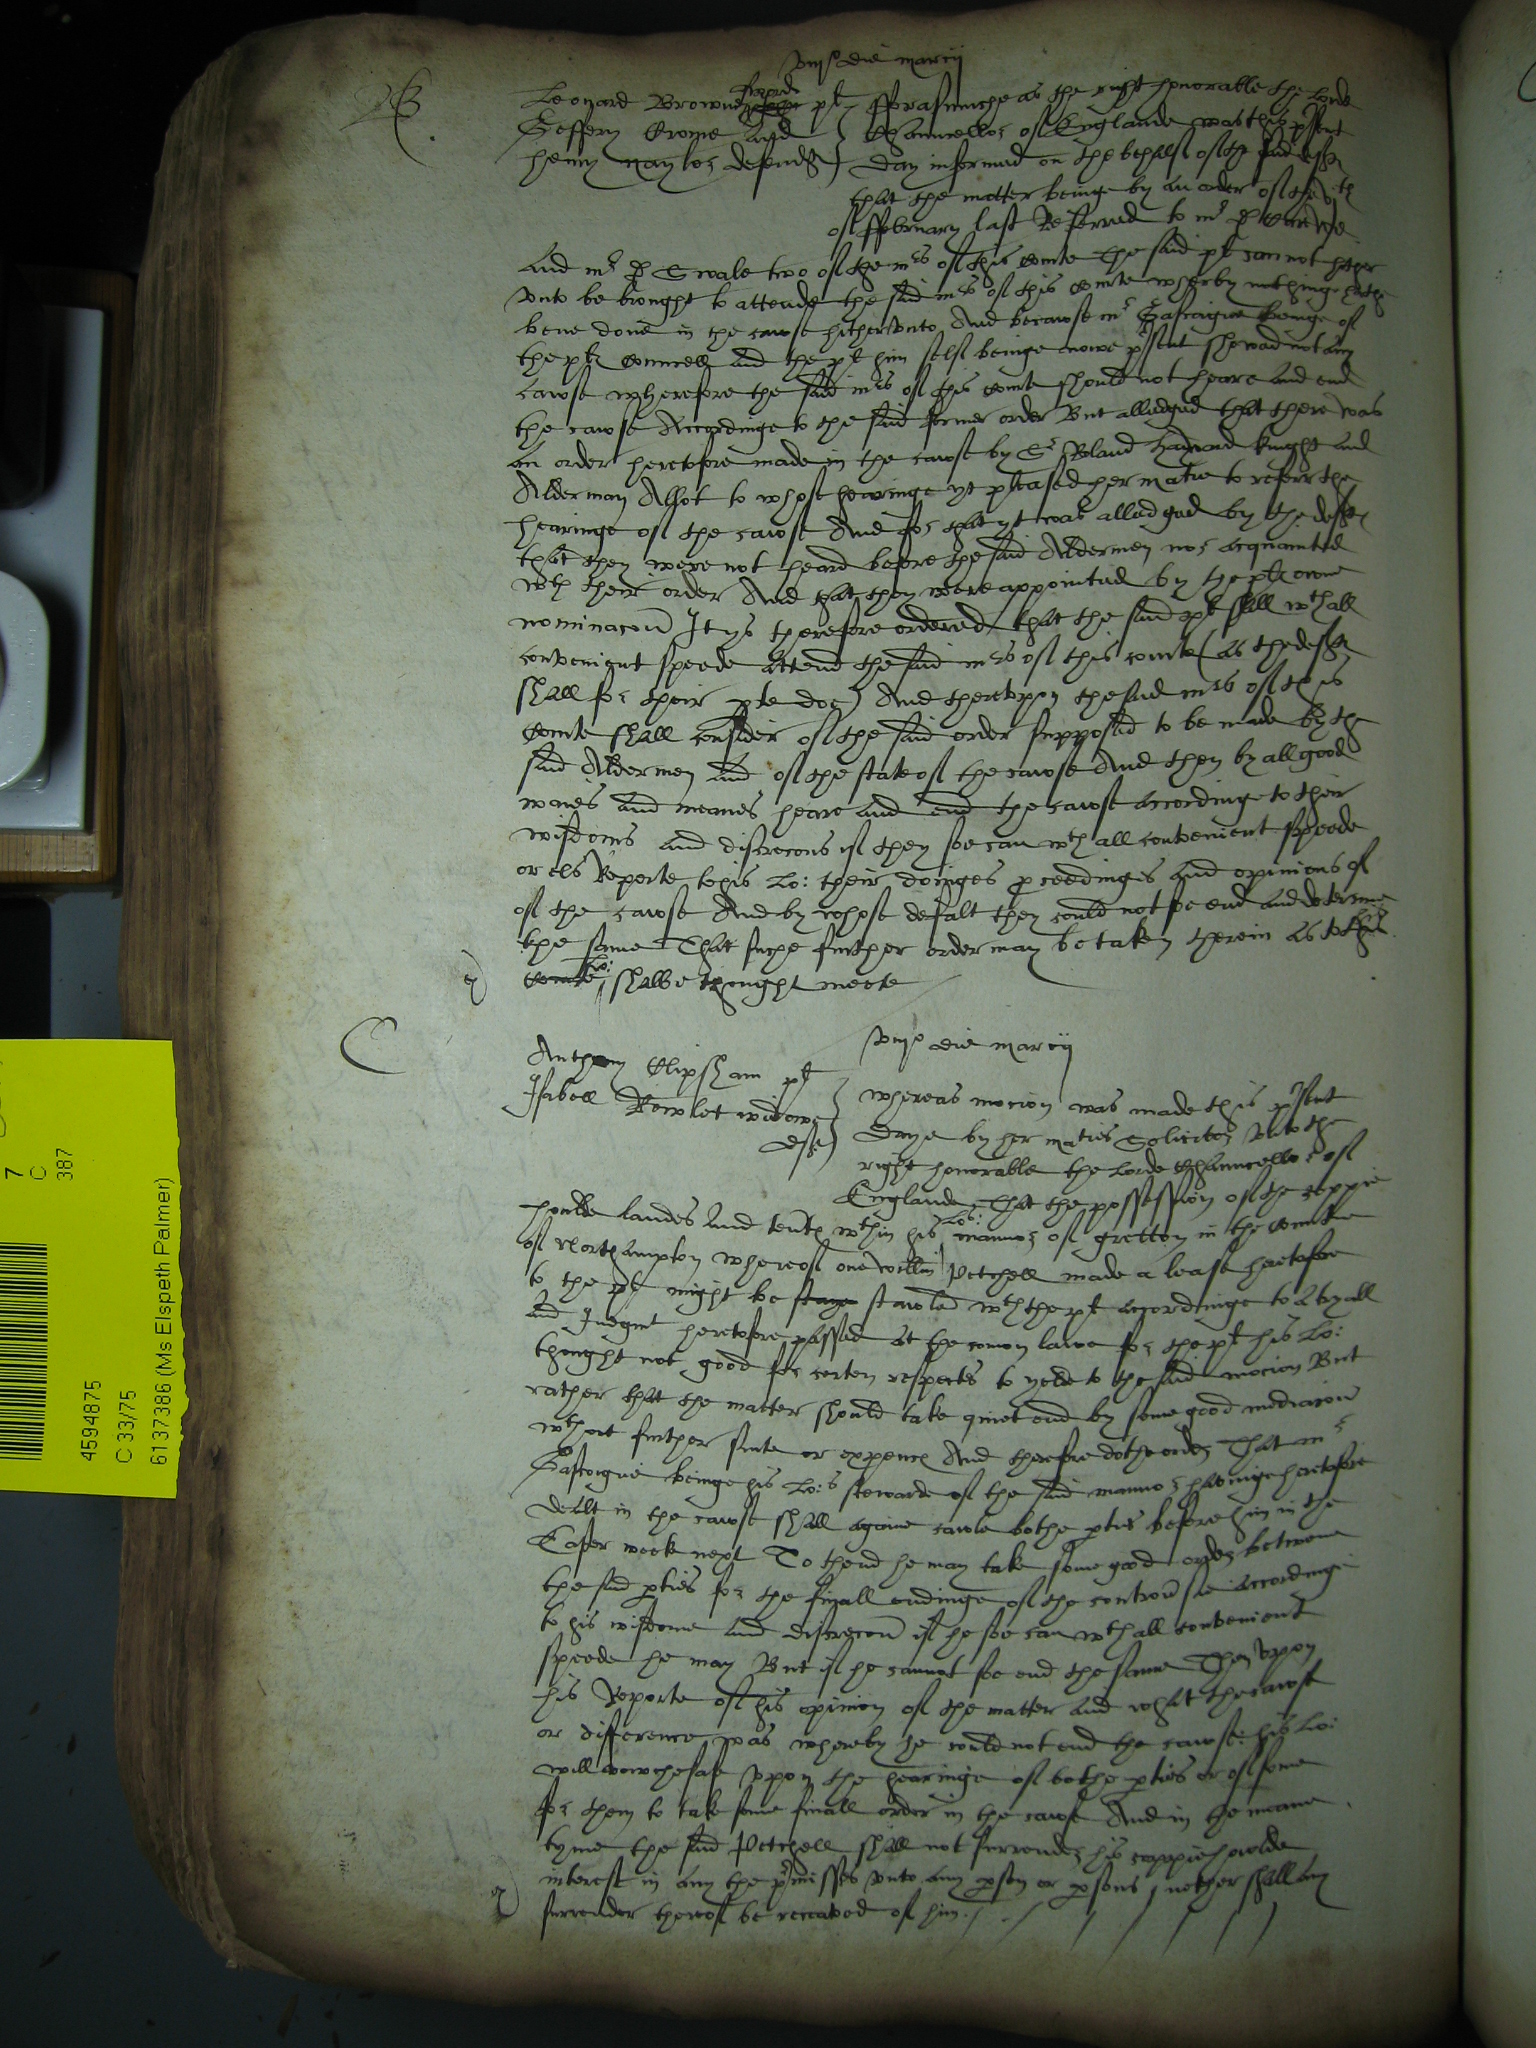 viijo die marcij
B
Leonard Browne pl
Geffery Crome and
henry naylor defendtes
fforasmuche as the right honorable the Lorde
Chauncellor of Englande was this pnte
day informed on the behalf of the said deftes
that the matter beinge by an order of the vth
of ffebruary last Referred to mr D
and mr D Swale two of the mrs of this Courte The said pl cannot hither
vnto be brought to attende the said mrs of this Courte wherby nothinge hathe
bene done in the cawse hithervnto And because mr Gascoigne beinge of
the ples Councell and the pl him self beinge nowe pnte shewed not any
cawse wherefore the said mrs of this Courte should not heare and end
the cawse Accordinge to the said former order But alledged that there was
an order heretofore made in the cawse by Sr Roland Hayward knight and
Alderman Allot to whose hearinge yt pleased her matie to referr the
hearinge of the cawse And for that yt was alledged by the deftes
that they were not heard before the said Aldermen nor acquainted
wth their order And that they were appointed by the ples owne
nominacon It ys therefore ordered that the said pl shall wth all
convenient speede attend the said mrs of this courte (as the deftes
shall for their pte doe) And therevppon the said mrs of this
Courte shall consider of the said order supposed to be made by the
said Aldermen and of the state of the cawse And then by all good
wayes and meanes heare and end the cawse accordinge to their
wisdoms and discrecons if they soe can wth all convenient speede
or els Reporte to his Lo: their doinges proceedinges and opinions of
of the cawse And by whose defalt they could not soe end and determine
the same That suche further order may be taken therein as to this
Courte Lo: shalbe thought meete
C
viijo die marcij
Anthony Clipsham pl
Isabell Rowlet widowe
deft
whereas mocion was made this pnte
daye by her maties Solicitor vnto the
right honorable the Lorde Chauncellor of
Englande That the possession of the coppie
houlde landes and tentes wthin his Los: mannor of gretton in the Countie
of Northampton whereof one Willm Petchell made a lease heretofore
to the pl might be stay stawled wth the pl accordinge to a tryall
and Iudgmt heretofore passed at the comon lawe for the pl his Lo:
thought not good for certen respects to yelde to the said mocion But
rather that the matter should take quiet end by some good mediacon
wthout further sute or expence And therefore dothe order That mr
Gascoigne beinge his Lo:s stewarde of the said mannor havinge heretofore
dealt in the cawse shall againe cawle bothe pties before him in the
Easter week next To thend he may take some good order betwene
the said pties for the finall endinge of the controusie accordinge
to his wisdome and discrecon if he soe can wth all convenient
speede he may But if he cannot soe end the same Then vppon
his Reporte of his opinion of the matter and what the cawse
or difference was whereby he could not end the cawse: his Lo:
will vowchesafe vppon the hearinge of bothe pties or of some
for them to take some finall order in the cawse And in the meane
tyme the said Petchell shall not surrender his coppiehowlde
interest in any the pmisses vnto any pson or psons, nether shall any
surrender thereof be receaved of him.
7
C
387
4594875
C 33/75
6137386 (Ms Elspeth Palmer)